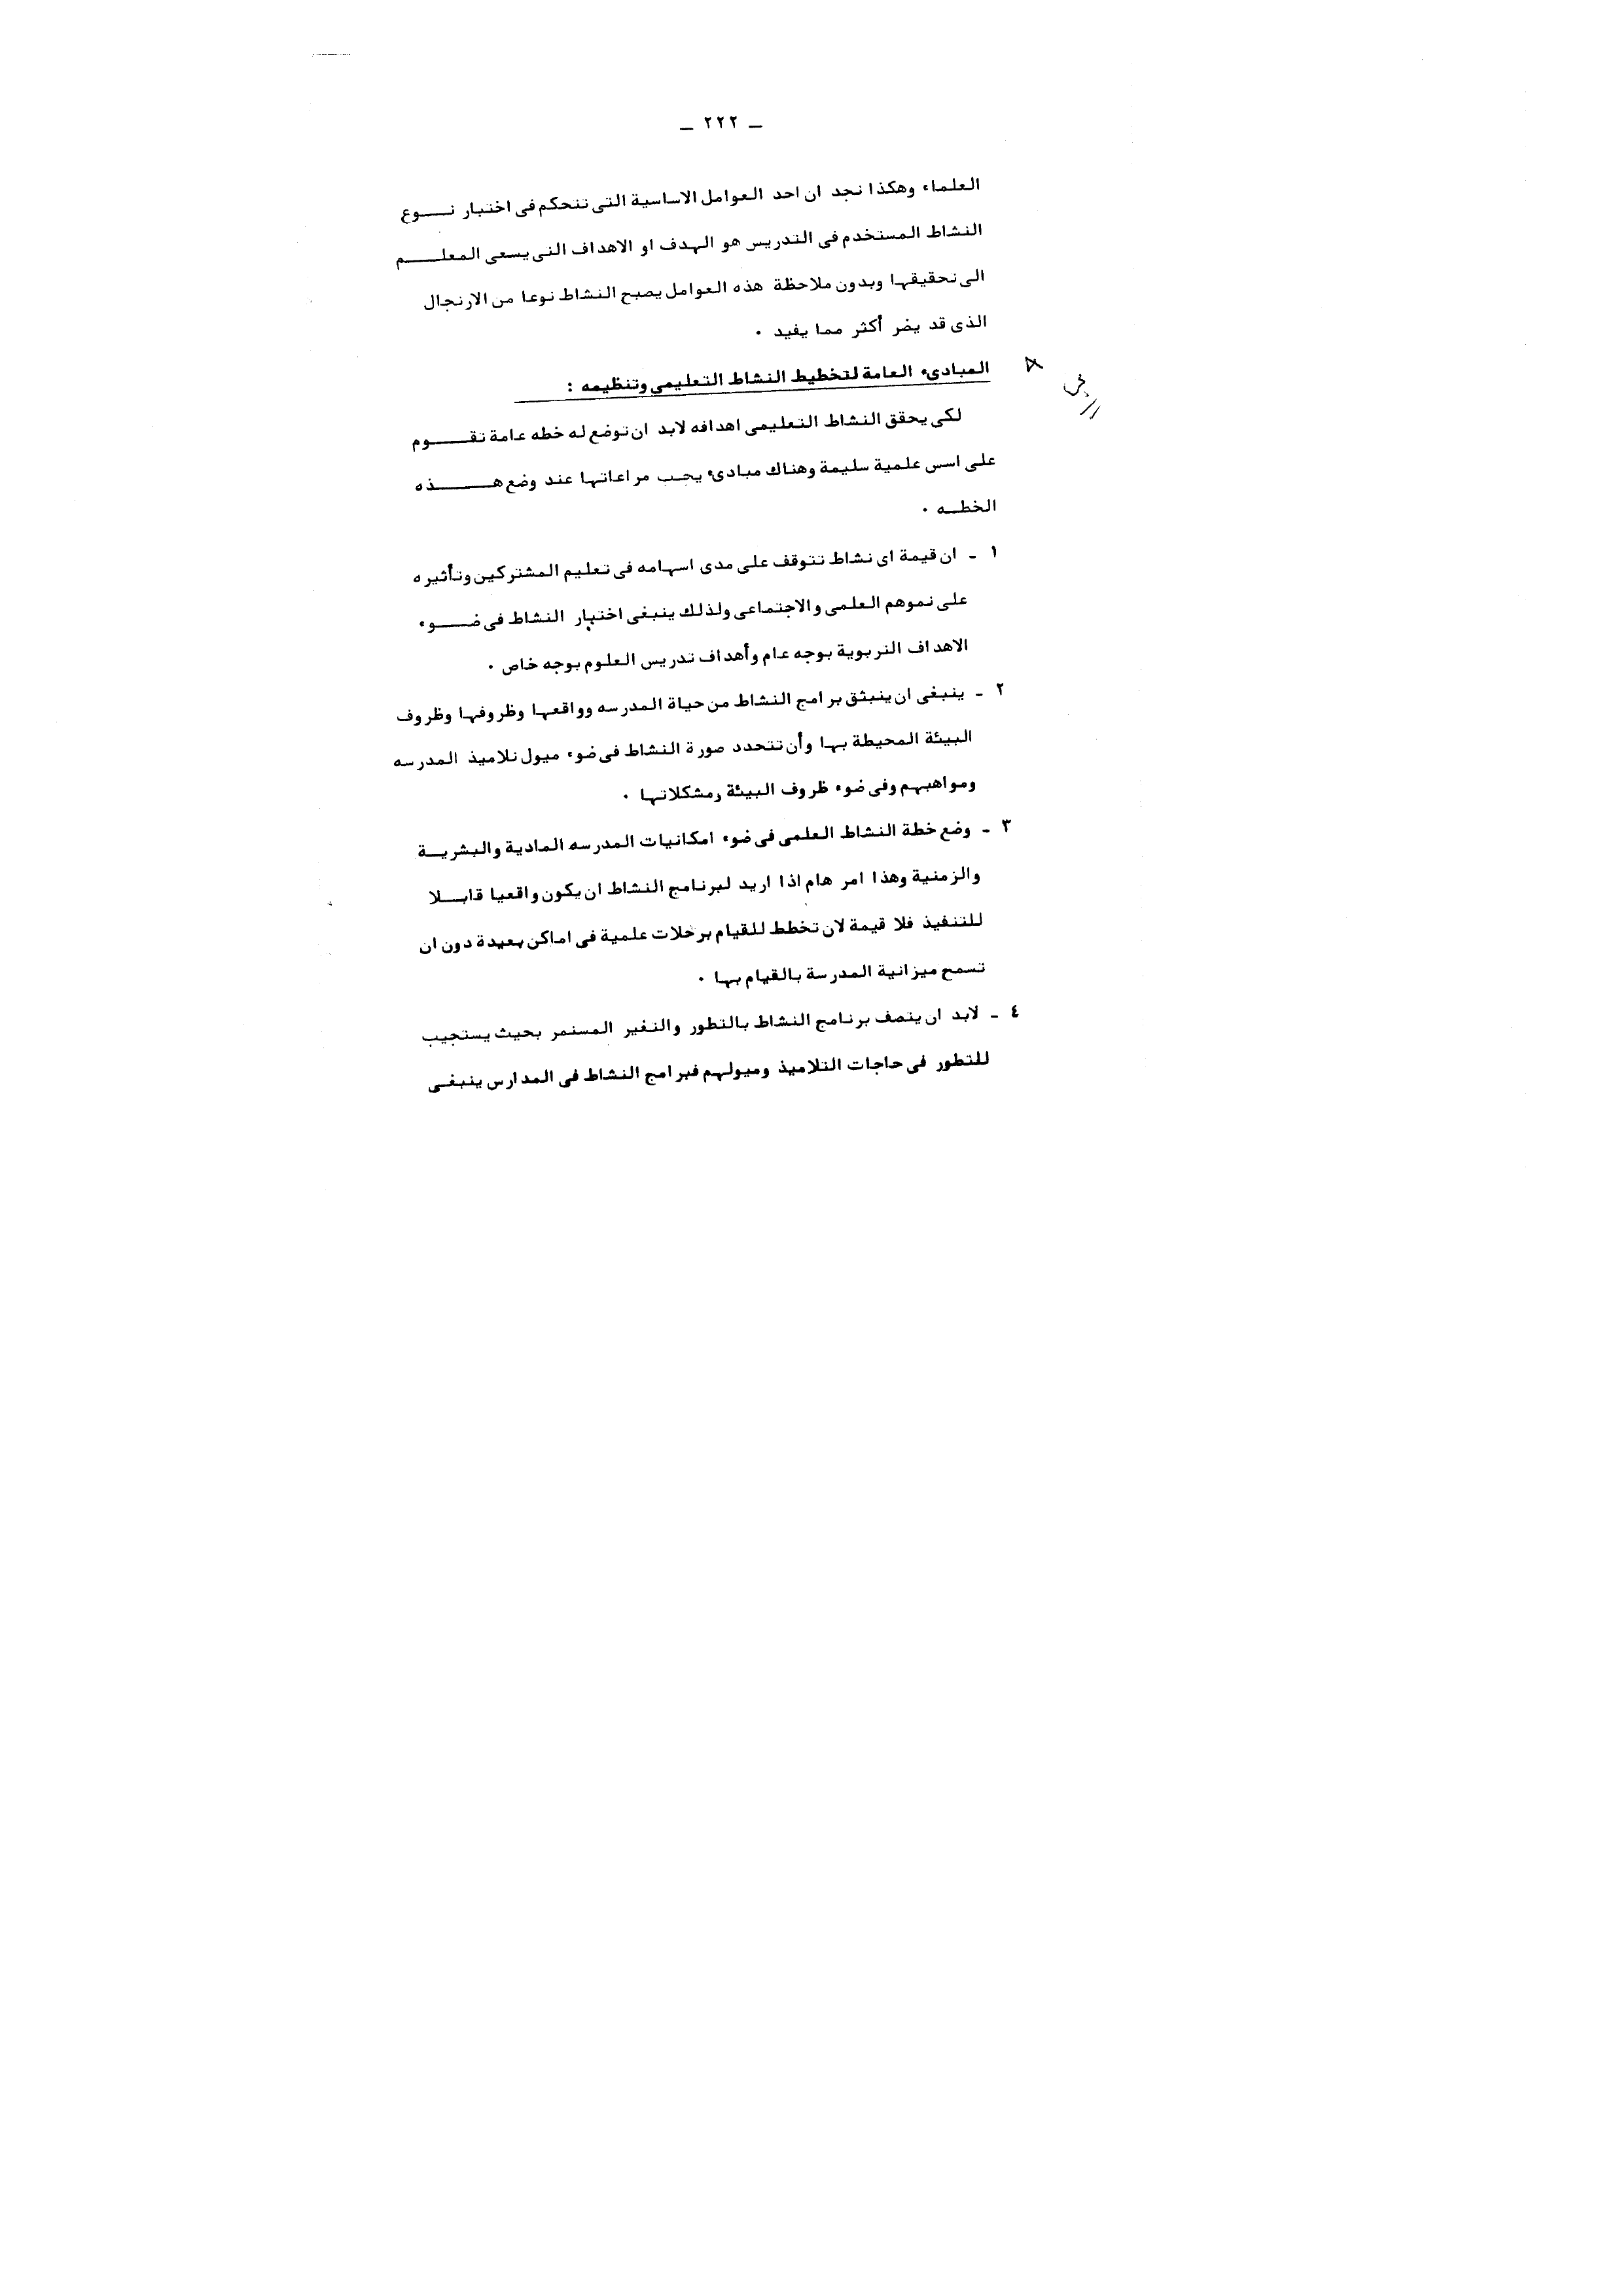 ـ ٢٢٢ ـ
العلماء وهكذا نجد ان احد العوامل الاساسية التى تتحكم فى اختيار نوع
النشاط المستخدم فى التدريس هو الهدف او الاهداف التى يسعى المعلم
الى تحقيقها وبدون ملاحظة هذه العوامل يصبح النشاط نوعا من الارتجال
الذى قد يضر أكثر مما يفيد ٠
المبادىء العامة لتخطيط النشاط التعليمى وتنظيمه :
لكى يحقق النشاط التعليمى اهدافه لابد ان توضع له خطه عامة تقوم
على اسس علمية سليمة وهناك مبادىء يجب مراعاتها عند وضع هذه
الخطه ٠
١ ـ ان قيمة اى نشاط تتوقف على مدى اسهامه فى تعليم المشتركين وتأثيره
على نموهم العلمى والاجتماعى ولذلك ينبغى اختيار النشاط فى ضوء
الاهداف التربوية بوجه عام وأهداف تدريس العلوم بوجه خاص ٠
٢ ـ ينبغى ان ينبثق برامج النشاط من حياة المدرسه وواقعها وظروفها وظروف
البيئة المحيطة بها وأن تتحدد صورة النشاط فى ضوء ميول تلاميذ المدرسه
ومواهبهم وفى ضوء ظروف البيئة ومشكلاتها ٠
٣ ـ وضع خطة النشاط العلمى فى ضوء امكانيات المدرسه المادية والبشرية
والزمنية وهذا امر هام اذا اريد لبرنامج النشاط ان يكون واقعيا قابلا
للتنفيذ فلا قيمة لان تخطط للقيام برحلات علمية فى اماكن بعيدة دون ان
تسمح ميزانية المدرسة بالقيام بها ٠
٤ ـ لابد ان يتصف برنامج النشاط بالتطور والتغير المستمر بحيث يستجيب
للتطور فى حاجات التلاميذ وميولهم فبرامج النشاط فى المدارس ينبغى